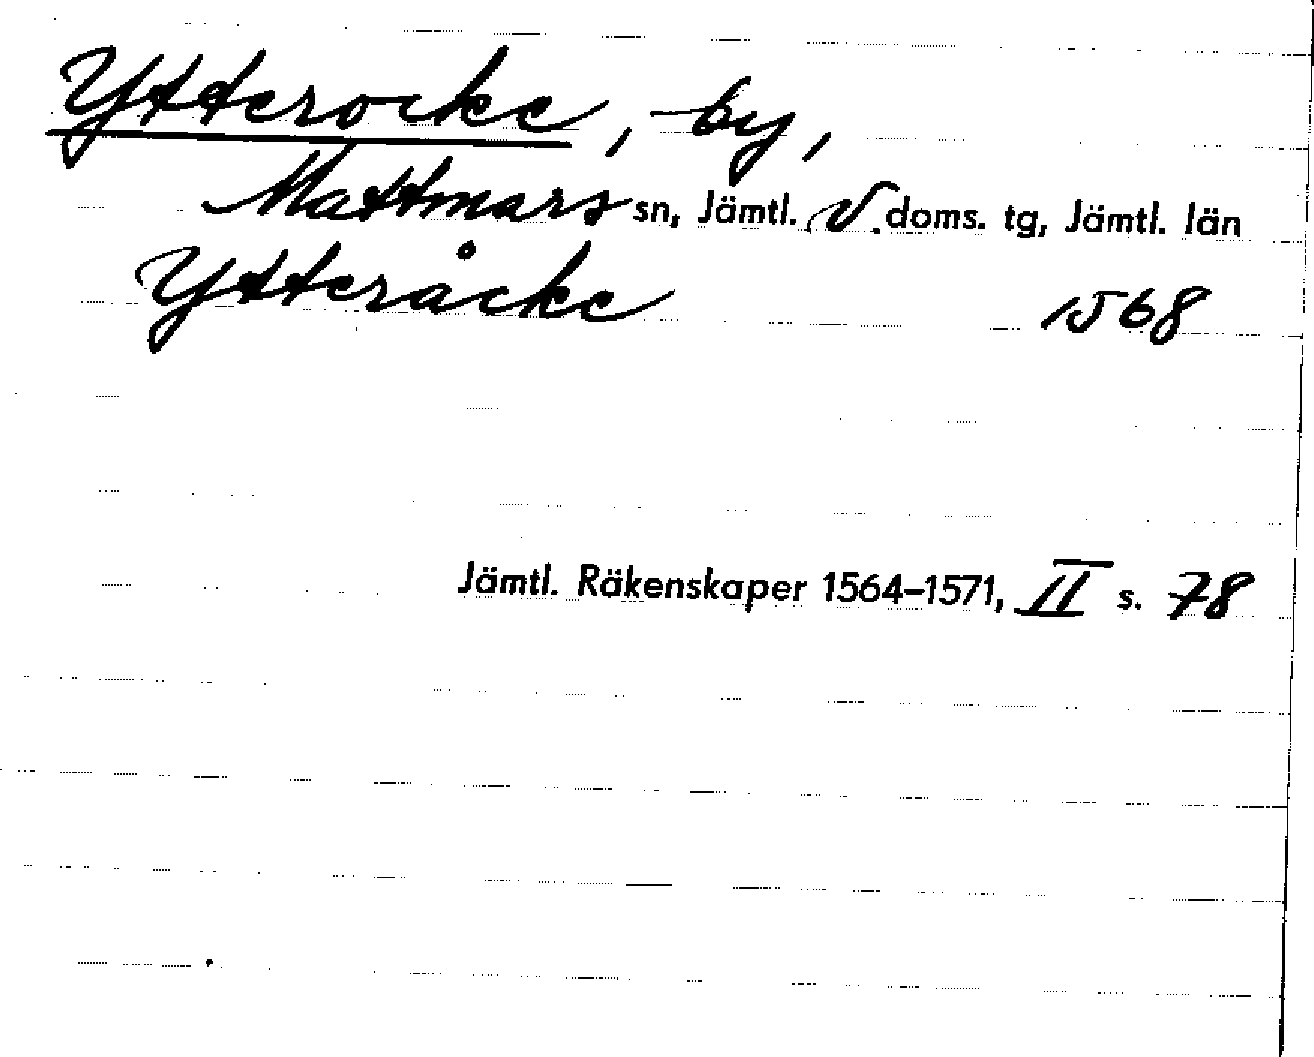 Ytterocke, by,
Mattmars sn, Jämtl. V. doms. tg, Jämtl. län
Ytteråcke 1568
Jämtl. Räkenskaper 1564–1571, II s. 78